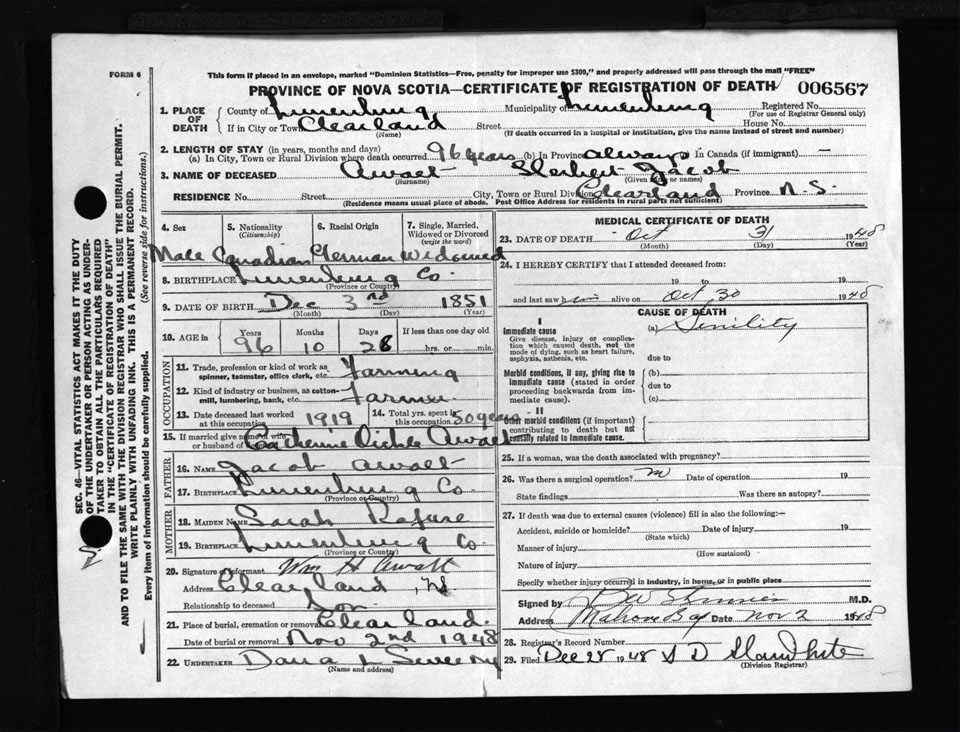 FORM 6
This form if placed in an envelope, marked "Dominion Statistics—Free, penalty for improper use $300," and properly addressed will pass through the mail "FREE"
PROVINCE OF NOVA SCOTIA—CERTIFICATE OF REGISTRATION OF DEATH 006567
1. PLACE OF DEATH County of Lunenburg Municipality of Lunenburg Registered No.
(For use of Registrar General only)
If in City or Town Clearland Street House No.
(Name) (If death occurred in a hospital or institution, give the name instead of street and number)
2. LENGTH OF STAY (in years, months and days)
(a) In City, Town or Rural Division where death occurred 96 years (b) In Province always In Canada (if immigrant) —
3. NAME OF DECEASED Awalt Herbert Jacob
(Surname) (Given name or names)
RESIDENCE No. Street City, Town or Rural Division Clearland Province N. S.
(Residence means usual place of abode. Post Office Address for residents in rural parts not sufficient)
4. Sex 5. Nationality (Citizenship) 6. Racial Origin 7. Single, Married, Widowed or Divorced (write the word)
Male Canadian German Widowed
8. BIRTHPLACE Lunenburg Co.
(Province or Country)
9. DATE OF BIRTH Dec 3rd 1851
(Month) (Day) (Year)
10. AGE in Years Months Days If less than one day old
96 10 28 hrs. or min.
OCCUPATION
11. Trade, profession or kind of work as spinner, teamster, office clerk, etc. Farming
12. Kind of industry or business, as cotton-mill, lumbering, bank, etc. Farmer
13. Date deceased last worked at this occupation 1919 14. Total yrs. spent in 50 years
15. If married give name of wife or husband of Catherine Awalt
FATHER
16. NAME Jacob Awalt
17. Birthplace Lunenburg Co.
(Province or Country)
MOTHER
18. MAIDEN NAME Sarah Rafuse
19. Birthplace Lunenburg Co.
(Province or Country)
20. Signature of informant Wm H Awalt
Address Clearland, NS
Relationship to deceased Son
21. Place of burial, cremation or removal Clearland.
Date of burial or removal Nov 2nd 1948
22. UNDERTAKER Dana L Sweeny
(Name and address)
MEDICAL CERTIFICATE OF DEATH
23. DATE OF DEATH Oct 31 1948
(Month) (Day) (Year)
24. I HEREBY CERTIFY that I attended deceased from:
19 to 19
and last saw him alive on Oct 30 1948
CAUSE OF DEATH
I
Immediate cause (a) Senility
Give disease, injury or complication which caused death, not the mode of dying, such as heart failure, asphyxia, asthenia, etc. due to
Morbid conditions, if any, giving rise to immediate cause (stated in order proceeding backwards from immediate cause). (b)
due to
(c)
II
Other morbid conditions (if important) contributing to death but not causally related to immediate cause.
25. If a woman, was the death associated with pregnancy?
26. Was there a surgical operation? Date of operation 19
State findings Was there an autopsy?
27. If death was due to external causes (violence) fill in also the following:—
Accident, suicide or homicide? Date of injury 19
(State which)
Manner of injury
(How sustained)
Nature of injury
Specify whether injury occurred in industry, in home, or in public place
Signed by M.D.
Address Mahone Bay Date Nov 2 1948
28. Registrar's Record Number
29. Filed Dec 28 1948 S D
(Division Registrar)
SEC. 46—VITAL STATISTICS ACT MAKES IT THE DUTY
OF THE UNDERTAKER OR PERSON ACTING AS UNDER-
TAKER TO OBTAIN ALL THE PARTICULARS REQUIRED
IN THE "CERTIFICATE OF REGISTRATION OF DEATH"
AND TO FILE THE SAME WITH THE DIVISION REGISTRAR WHO SHALL ISSUE THE BURIAL PERMIT.
WRITE PLAINLY WITH UNFADING INK. THIS IS A PERMANENT RECORD.
Every item of information should be carefully supplied. (See reverse side for instructions.)